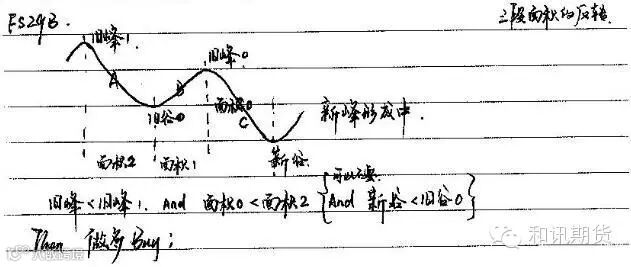 FS29B.
三段面积的反转.
旧峰1.
旧峰0.
A
B
面积0
C
旧谷0
新峰形成中.
面积2
面积1
新谷
可以不要.
旧峰<旧峰1. And 面积0<面积2 {And 新谷<旧谷0}
Then 做多 Buy;
和讯期货